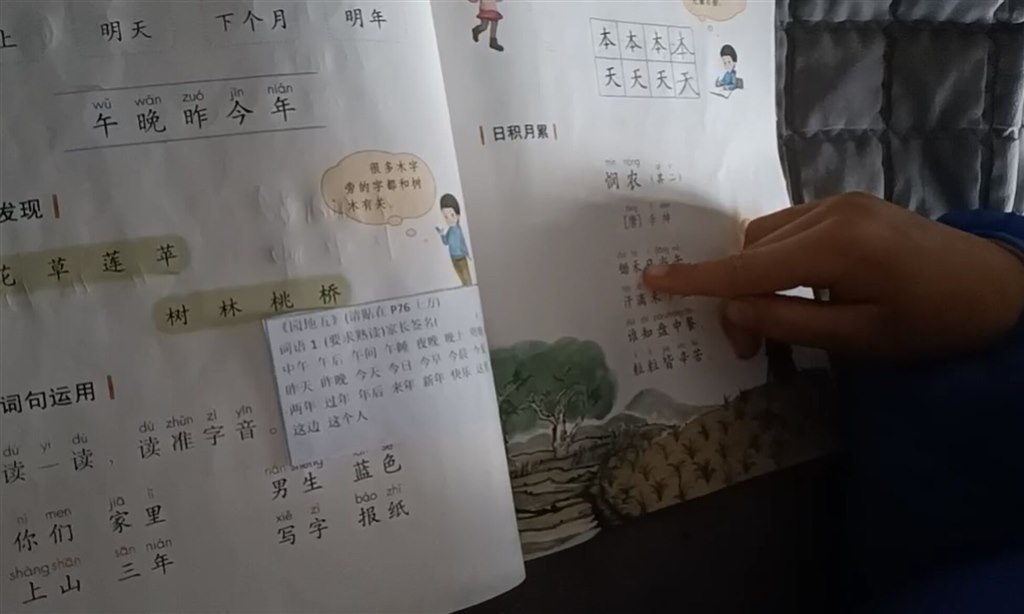 上 明天 下个月 明年
wǔ wǎn zuó jīn nián
午 晚 昨 今 年
发现
很多木字
旁的字都和树
木有关。
花 草 莲 苹
树 林 桃 桥
《园地五》(请贴在 P76 上方)
词语 1 (要求熟读)家长签名(
中午 午后 午间 午睡 夜晚 晚上
昨天 昨晚 今天 今日 今早 今晨
两年 过年 年后 来年 新年 快乐
这边 这个人
词句运用
dú yi dú dú zhǔn zì yīn
读一读，读准字音。
nán shēng
男生 蓝色
nǐ men jiā lǐ
你们 家里
xiě zì bào zhǐ
写字 报纸
shàng shān sān nián
上山 三年
本 本 本 本
天 天 天 天
日积月累
悯农(其二)
[唐]李绅
锄禾日
汗滴禾
谁知盘中餐
粒粒皆辛苦